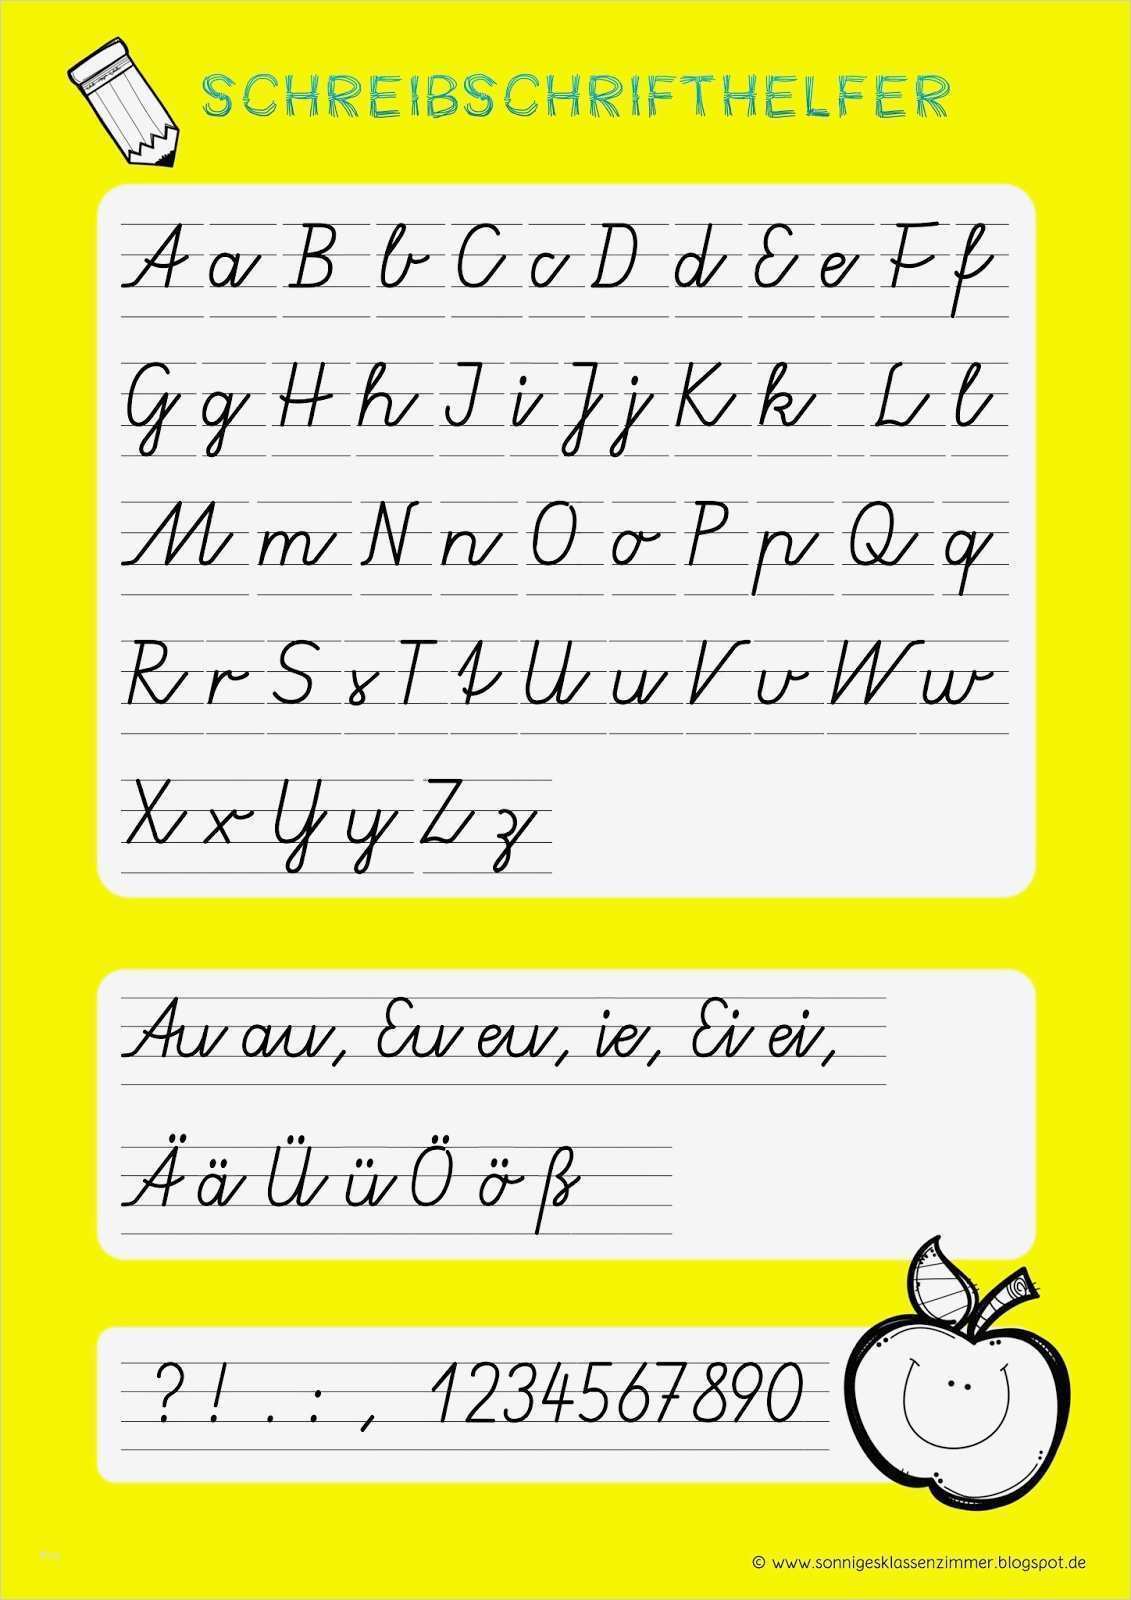 SCHREIBSCHRIFTHELFER
A a B b C c D d E e F f
G g H h I i J j K k L l
M m N n O o P p Q q
R r S s T t U u V v W w
X x Y y Z z
Au au, Eu eu, ie, Ei ei,
Ä ä Ü ü Ö ö ß
? ! . : , 1234567890
© www.sonnigesklassenzimmer.blogspot.de